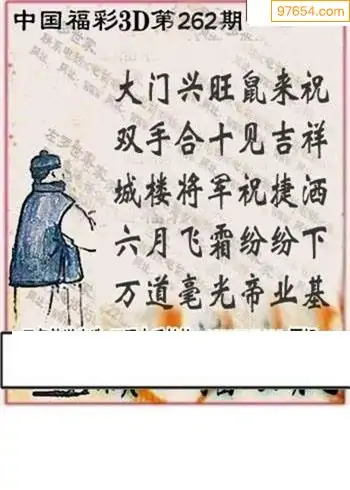 97654.com
中国福彩3D第262期
大门兴旺鼠来祝
双手合十见吉祥
城楼将军祝捷洒
六月飞霜纷纷下
万道毫光帝业基